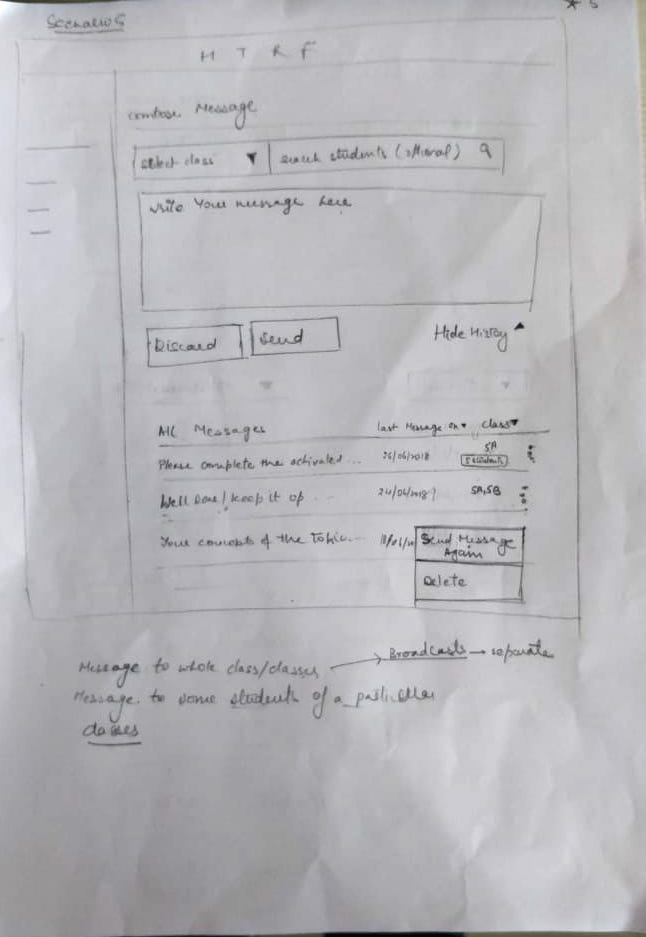 Scenario 5
* 5
M T R F
Compose Message
Select class ▼ search students (optional)
Write Your message here
Discard
Send
Hide History ▲
All Messages last Message on ▼ class ▼
Please complete the activated ... 26/06/2018 5A
5 students
Well Done! keep it up ... 24/06/2018 5A,5B
Your concepts of the Topic... 18/06/
Send Message Again
Delete
Message to whole class/classes → Broadcasts → separate
Message to some students of a particular
classes